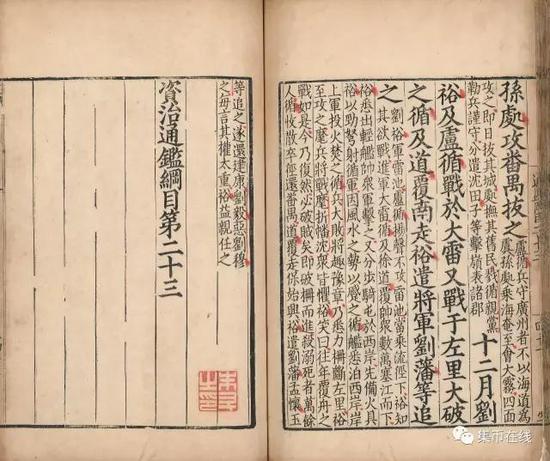 孫處攻番禺拔之
盧循兵守廣州者不以海道為
虞孫處乘海奄至會大霧四面
攻之即日拔其城處撫其舊民戮循親黨
勒兵謹守分遣沈田子等擊嶺表諸郡
十二月劉
裕及盧循戰於大雷又戰于左里大破
之循及道覆南走裕遣將軍劉藩等追
之
劉裕軍雷池盧循揚聲不攻雷池當乘流徑下裕知
其欲戰進軍大雷循及徐道覆帥衆數萬塞江而下
裕悉出輕艦帥衆軍擊之又分步騎屯於西岸先備火具
裕以勁弩射循軍因風水之勢以蹙之循艦悉泊西岸岸
上軍投火焚之循兵大敗將趣豫章乃悉力柵斷左里裕
至攻之麾兵將戰麾折幡沈衆皆懼裕笑曰往年覆舟之
戰如是今乃復然必破賊矣即破柵而進殺溺死者萬餘
人循收散卒徑還番禺道覆走保始興裕遣劉藩孟懷玉
等追之遂還建康劉毅惡劉穆
之每言其權太重裕益親任之
資治通鑑綱目第二十三
集币在线